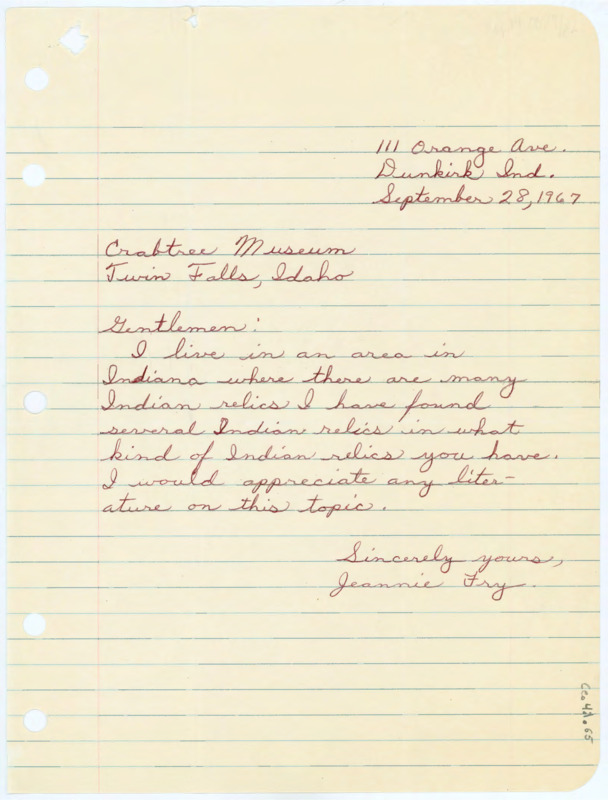 111 Orange Ave.
Dunkirk Ind.
September 28, 1967
Crabtree Museum
Twin Falls, Idaho
Gentlemen:
I live in an area in
Indiana where there are many
Indian relics I have found
several Indian relics in what
kind of Indian relics you have.
I would appreciate any liter-
ature on this topic.
Sincerely yours,
Jeannie Fry.